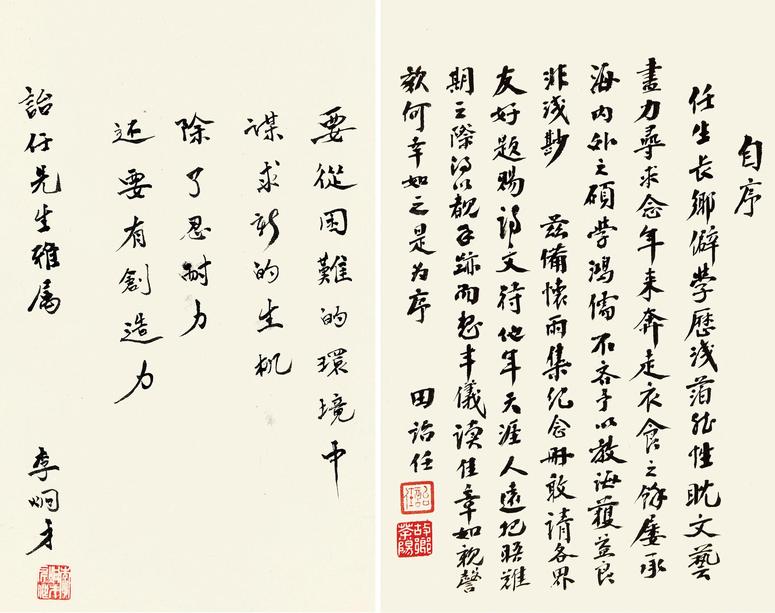 自序
任生长鄉僻學歷浅薄然性耽文藝
盡力尋求念年来奔走衣食之餘屢承
海内外之碩学鴻儒不吝予以教诲獲益良
非浅尠　兹備懷雨集纪念册敢請各界
友好題賜詩文待他年天涯人遠把晤難
期之際得以覩手跡而想丰儀读佳章如親謦
欬何幸如之是为序　田詒任
詒任
故鄉
要從困難的環境中
謀求新的生机
除了忍耐力
还要有創造力
詒任先生雅属
李炯才